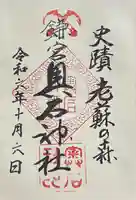 史蹟 老蘇の森
鎌宮奥石神社
令和六年十月六日